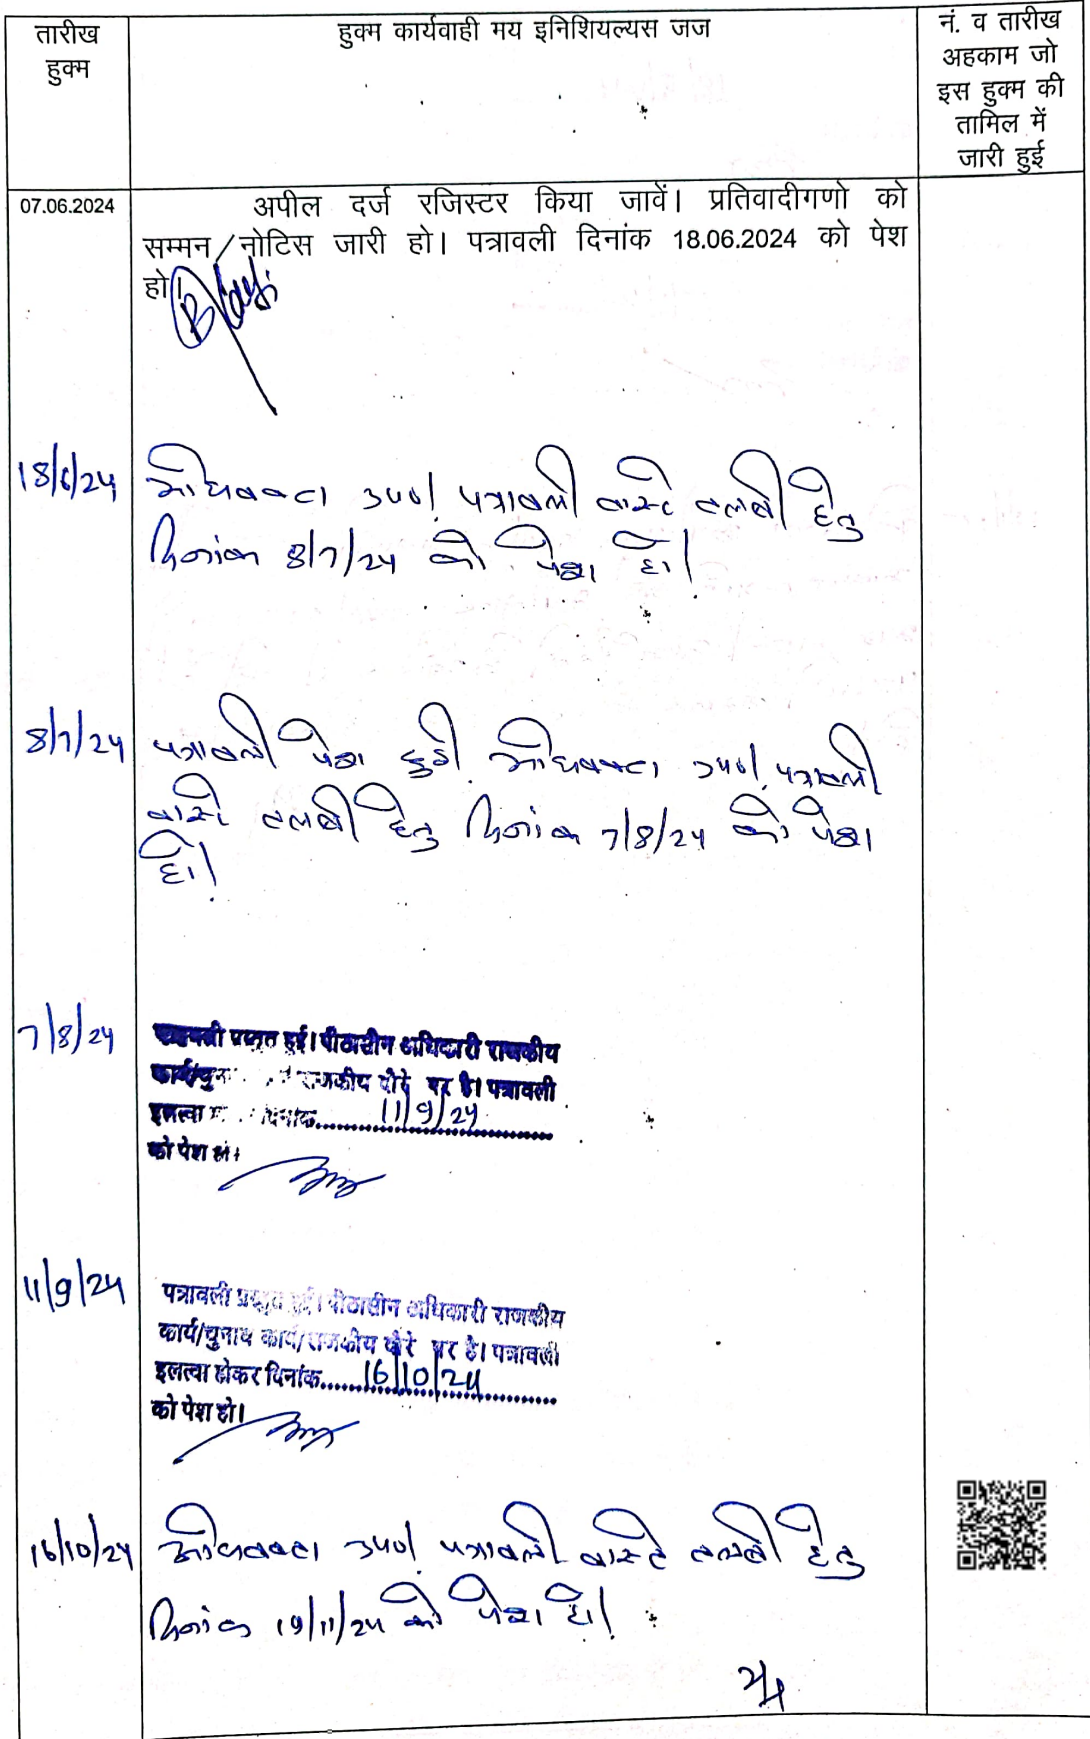 तारीख
हुक्म
हुक्म कार्यवाही मय इनिशियल्यस जज
नं. व तारीख
अहकाम जो
इस हुक्म की
तामिल में
जारी हुई
07.06.2024
अपील दर्ज रजिस्टर किया जावें। प्रतिवादीगणो को
सम्मन/नोटिस जारी हो। पत्रावली दिनांक 18.06.2024 को पेश
हो।
18/6/24
अधिवक्ता उप०। पत्रावली वास्ते तलबी हेतु
दिनांक 8/7/24 को पेश हो।
8/7/24
पत्रावली पेश हुई अधिवक्ता उप०। पत्रावली
वास्ते तलबी हेतु दिनांक 7/8/24 को पेश
हो।
7/8/24
पत्रावली प्रस्तुत हुई। पीठासीन अधिकारी राजकीय
कार्य/चुनाव राजकीय दौरे पर है। पत्रावली
इलत्वा दिनांक......11/9/24......
को पेश हो।
11/9/24
पत्रावली प्रस्तुत हुई। पीठासीन अधिकारी राजकीय
कार्य/चुनाव कार्य/राजकीय दौरे पर है। पत्रावली
इलत्वा होकर दिनांक......16/10/24......
को पेश हो।
16/10/24
अधिवक्ता उप०। पत्रावली वास्ते तलबी हेतु
दिनांक 19/11/24 को पेश हो।